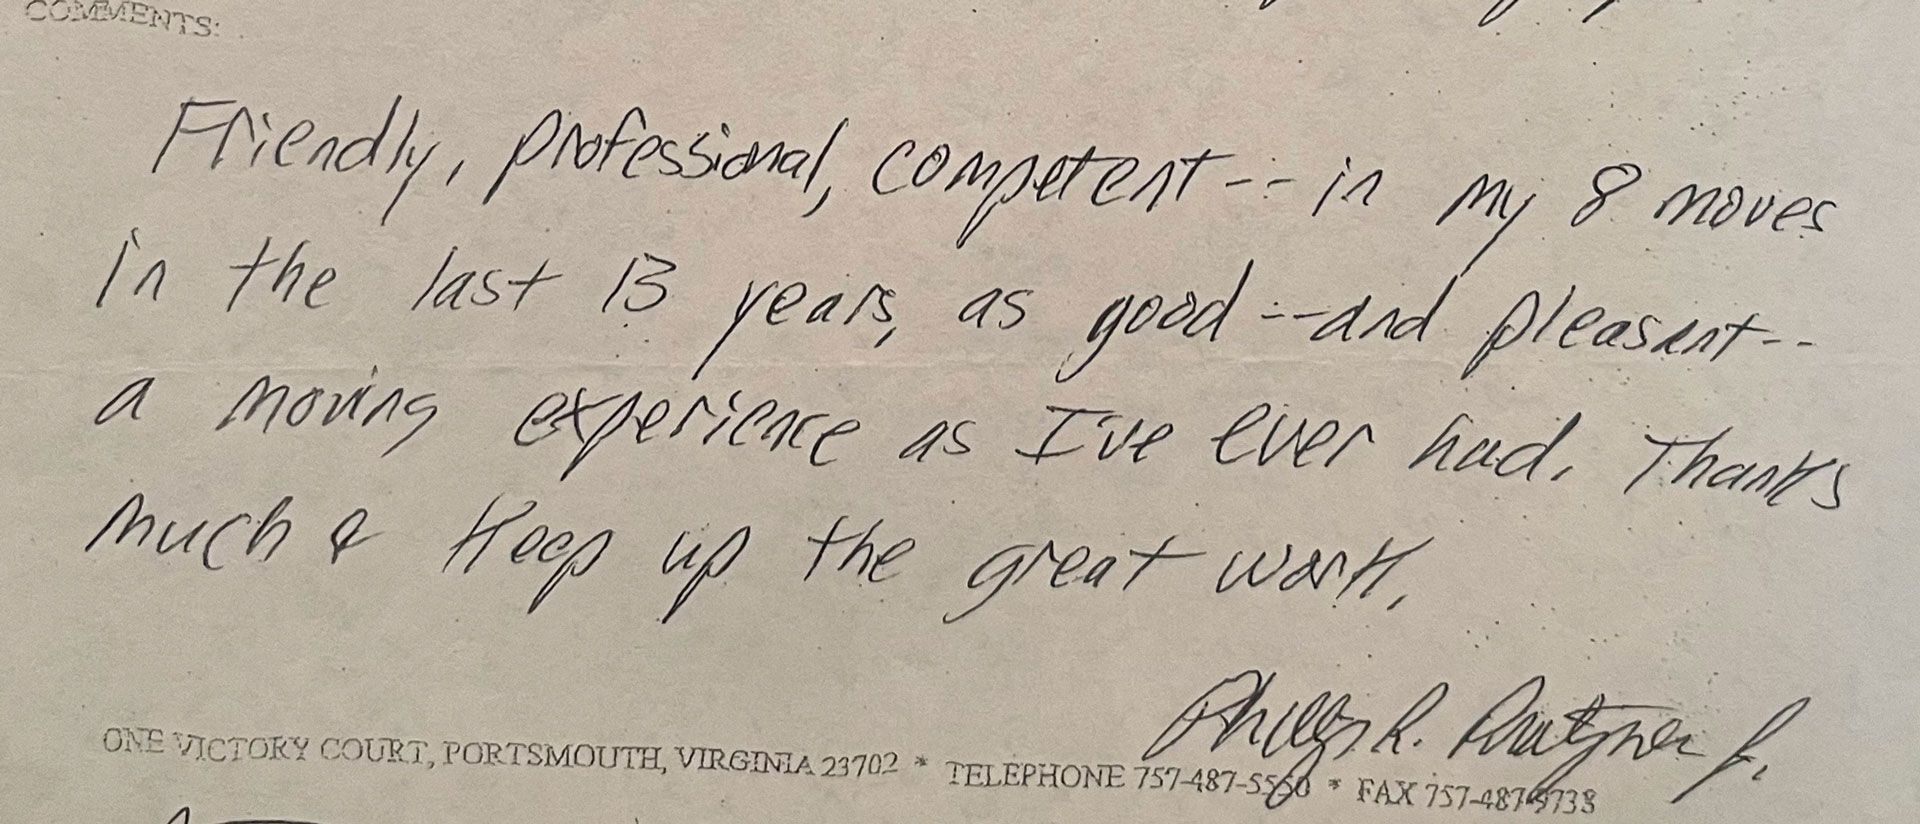 COMMENTS:
Friendly, professional, competent -- in my 8 moves
in the last 13 years, as good -- and pleasant --
a moving experience as I've ever had. Thanks
much & Keep up the great work.
Phillip R.
ONE VICTORY COURT, PORTSMOUTH, VIRGINIA 23702 * TELEPHONE 757-487-5550 * FAX 757-487-9738